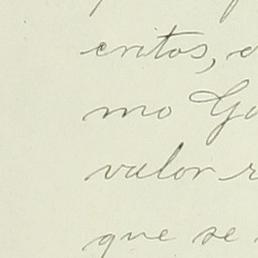 critos,
mo
valor
que se